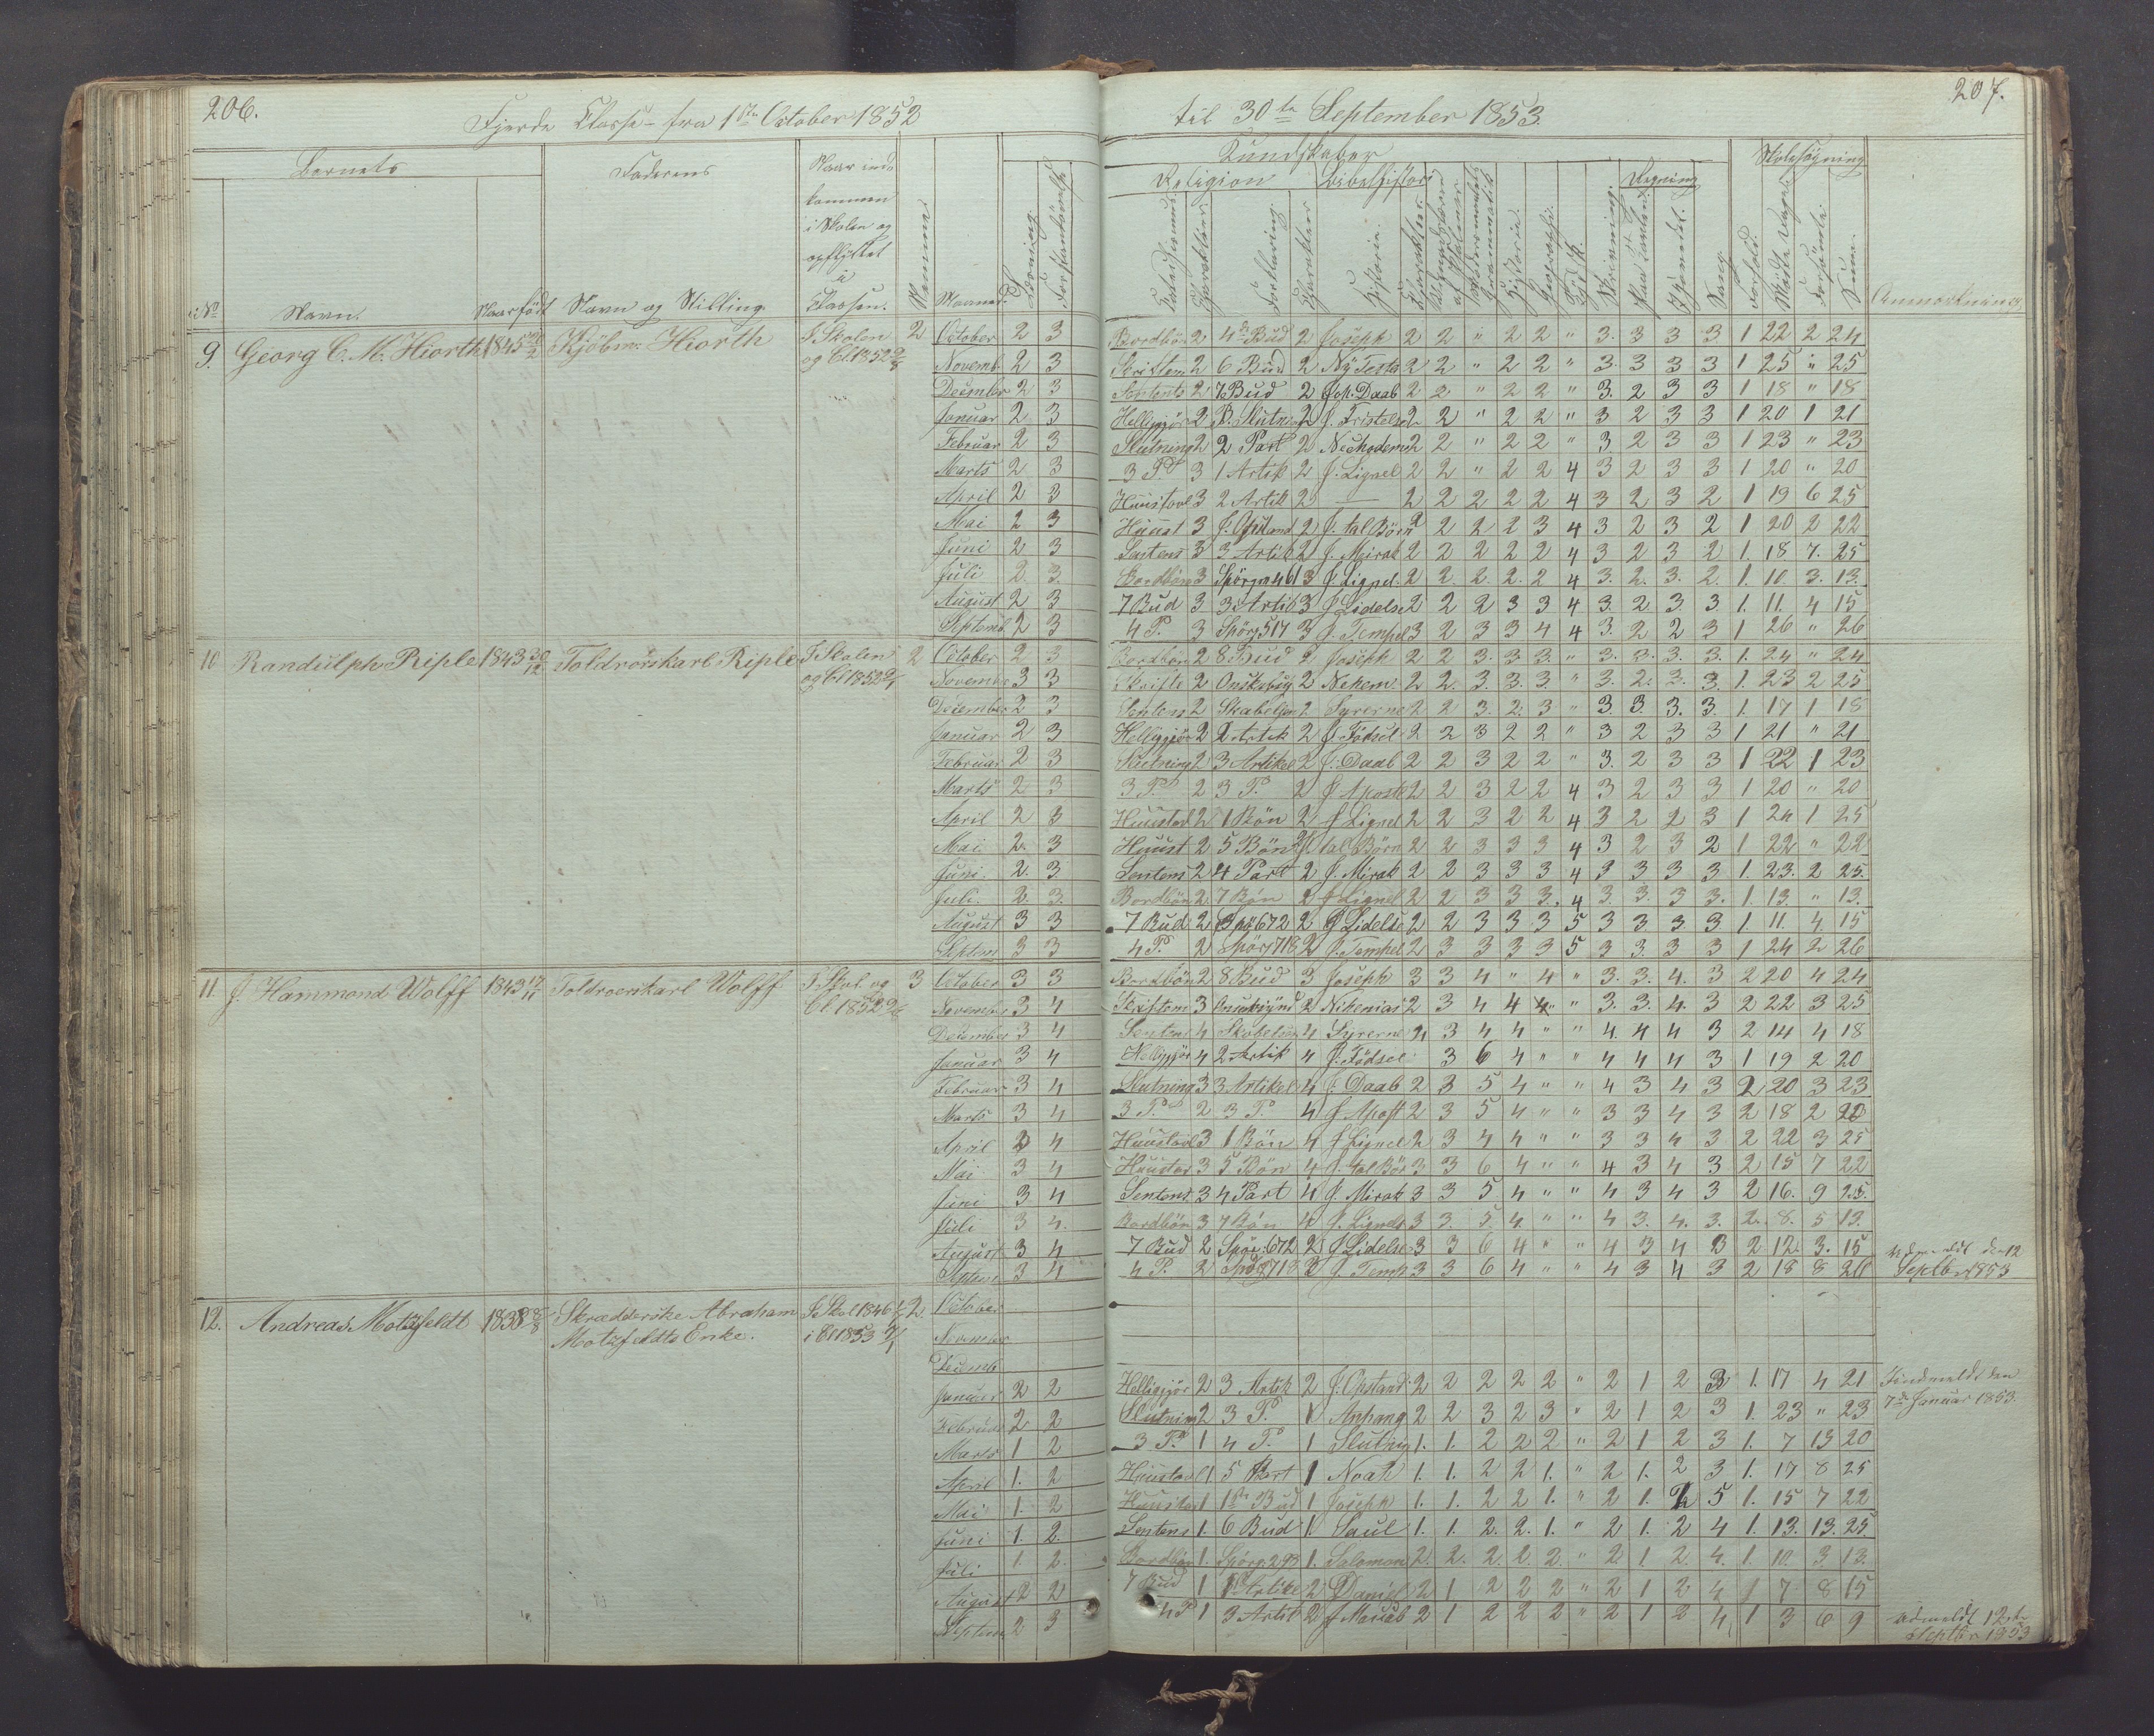 206.
Fjerde Classe fra 1ste October 1852
til 30te September 1853.
207.
Barnets
Faderens
Naar ind-
kommen
i Skolen og
opflyttet
i
Classen.
Kundskaber
Religion
Bibelhistorie
Regning
Skolesøgning
No
Navn.
Naar født
Navn og Stilling
Maaned.
Læsning
Forklaring
Historie
Geographi
Skrivning
Sang
Forsømte
Summa
Anmærkning
9. Georg C. M. Hiorth 1845 Kjöbm. Hiorth I Skolen 2 October 2 3 Bordbön 2 4de Bud 2 Joseph 2 2 " 2 2 " 3. 3 3 3 1 22 2 24
og Cl 1852 Novemb. 2 3 Skriftem 2 6 Bud 2 Ny Testa 2 2 " 2 2 " 3. 3 3 3 1 25 " 25
December 2 3 Sentents 2 7 Bud 2 Joh. Daab 2 2 " 2 2 " 3. 2 3 3 1 18 " 18
Januar 2 3 Helliggjör 2 B. Slutn 2 J. Fristelse 2 2 " 2 2 " 3 2 3 3 1 20 1 21
Februar 2 3 Slutning 2 2 Part 2 Neckodem 2 2 " 2 2 " 3 2 3 3 1 23 " 23
Marts 2 3 3 P. 3 1 Artik 2 J. Lignel 2 2 " 2 2 4 3 2 3 3 1 20 " 20
April 2 3 Huustavl 3 2 Artik 2 — 2 2 2 2 2 4 3 2 3 2 1 19 6 25
Mai 2 3 Huust 3 J. Opstand 2 J. tal Börn 2 2 2 2 3 4 3 2 3 2 1 20 2 22
Juni 2 3 Sentens 3 3 Artik 2 J. Mirak 2 2 2 2 2 4 3 2 3 2 1. 18 7. 25
Juli 2. 3. Bordbön 3 Spörgm 461 3 J. Lignel. 2 2. 2. 2. 2 4 3. 2. 3. 2. 1. 10. 3. 13.
August 2 3 7 Bud 3 3 Artik 3 J Lidelse 2 2 2 3 3 4 3. 2. 3. 3. 1. 11. 4 15
Septemb. 2 3 4 P. 3 Spörg 517 3 J. Tempel 3 2 3 3 4 4 3. 2 2 3 1 26 " 26
10 Randulph Riple 1843 Toldroerskarl Riple I Skolen 2 October 2 3 Bordbön 2 8 Bud 2 Joseph 2 2 3. 3. 3. " 3. 3. 3. 3. 1. 24 " 24
og Cl 1852 November 3 3 Skrifte 2 Onskebig 2 Nehem. 2 2. 3. 3. 3. " 3. 2. 3. 3. 1. 23 2 25
December 2 3 Sentens 2 Skabelsen 2 Syrerne 2 2 3. 2. 3 " 3. 3. 3. 3. 1. 17 1 18
Januar 2 3 Helliggjör 2 2 Artik 2 J. Födsel 2 2 3 2 2 " 3 2 3 3 1 21 " 21
Februar 2 3 Slutning 2 3 Artikel 2 J. Daab 2 2 3 2 2 " 3. 2 3 3 1 22 1 23
Marts 2 3 3 P. 2 3 P. 2 J Apostl 2 2 3 2 2 4 3 2 3 3 1 20 " 20
April 2 3 Huustavl 2 1 Bön 2 J Lignel 2 2 3 2 2 4 3 2 2 3 1 24 1 25
Mai 2. 3 Huust 2 5 Bön 2 J tal Börn 2 2 3 3 3 4 3 2 3 2 1 22 " 22
Juni. 2. 3. Sentens 2 4 Part 2 J. Mirak 2 2 3 3 3 4 3 3 3 3 1. 23. 2 25.
Juli. 2. 3. Bordbön 2 7 Bön 2 J Lignel 2 2 3 3 3. 4 3. 3. 3 3. 1. 13. " 13.
August 3 3 7 Bud 2 Spö 672 2 J Lidels 2 2 3 3 3 5 3 3. 3. 3. 1. 11. 4. 15
Septem 3 3 4 P. 2 Spörg 718 2 J. Tempel 2 3 3 3 3 5 3 3. 3 3 1 24 2 26
11 J. Hammond Wolff 1843 Toldroerskarl Wolff I Skol. og 3 October 3 3 Bordbön 2 8 Bud 3 Joseph 3 3 4 " 4 " 3. 3. 4. 3 2 20 4 24
Cl 1852 November 3 4 Skriftem 3 2 Nehemias 2 3 4 4 " 3. 3. 4. 3 2 22 3 25
December 3 4 Sentens 4 Skabelsen 4 Syrerne 4 3 4 4 " " 4. 4 4 3 2 14 4 18
Januar 3 4 Helliggjör 4 2 Artik 4 J. Födsel 3 6 4 " " 4 4 4 3 1 19 2 20
Februar 3 4 Slutning 3 3 Artikel 4 J. Daab 2 3 5 4 " " 4 3 4 3 2 20 3 23
Marts 3 4 3 P. 2 3 P. 4 J Apost 2 3 5 4 " " 3 3 4 3 2 18 2 20
April 3 4 Huustavl 3 1 Bön 4 J Lignel 2 3 4 4 " " 3 3 4 3 2 22 3 25
Mai 3 4 Huustav 3 5 Bön 4 J. tal Bör 3 3 6 4 " " 4 3 4 3 2 15 7 22
Juni 3 4 Sentens. 3 4 Part 4 J. Mirak 3 3 5 4 " " 4 3 4 3 2 16. 9 25.
Juli 3 4. Bordbön 3 7 Bön 4 J. Lignels 3 3. 5 4. " " 4 3. 4. 3. 2. 8. 5 13.
August 3 4 7 Bud 2 Spör. 672 2 J Lidelse 3 3 6 4 " " 4 3 4 3 2 12. 3. 15 Udmeldt den 12
Septem 3 4 4 P. 2 Spörg 718 3 J. Temp 3 3 6 4 " " 4 3 4 3 2 18 8 26 Septbr 1853
12. Andreas Motzfeldt 1838 Skrædderske Abraham I Skol 1846 2 October
Motzfeldts Enke. i Cl 1853 November
Decemb
Januar 2 2 Helliggjör 2 3 Artik 2 J. Opstand. 2 2 2 2 2 " 2 1 2 3 1. 17 4 21 Indmeldt den
Februar 2 2 Slutning 2 3 P. 1 Anhang 2 2 3 2 3 " 2 1 2 3 1. 23 " 23 7de Januar 1853.
Marts 1 2 3 P. 1 4 P. 1 Slutning 1. 1. 2 2 2 " 2 1 2 3 1. 7 13 20
April 1. 2 Huustavl 1 5 Part 1 Noah 1. 1. 2 2 1. " 2 1. 2 3 1. 17 8 25
Mai 1. 2 Huustav 1 1ste Bud 1 Joseph 1. 1. 2 2 1. " 2 1. 2 5 1. 15 7 22
Juni 1 2. Sentens 1. 6 Bud 1. Saul 1. 1. 2. 2. 1. " 2 1. 2 4 1. 13. 13. 25.
Juli 1. 2. Bordbön 1. Spörg. 293 1. Salomon 2. 2. 2. 2. 2. " 2 1 2. 4. 1. 10. 3 13.
August 2 2 7 Bud 1 1ste Artike 2 Daniel 2 1 2 2 2 " 2 1 2 4 1 7 8 15
Septem 2 3 4 P 1 3 Artik 2 J Maaab 2 1 2 2 2 " 2 1 2 4 1 3 6 9 Udmeldt 12te
Septbr 1853